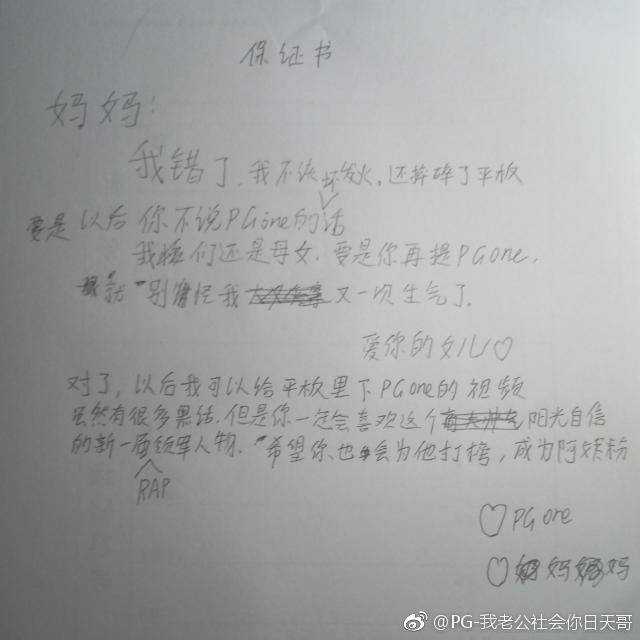 保证书
妈妈！
我错了，我不该发火，还摔碎了平板
要是以后你不说PGone的坏话
我们还是母女，要是你再提PGone，
就别怪我又一次生气了。
爱你的女儿♡
对了，以后我可以给平板里下PGone的视频
虽然有很多黑结，但是你一定会喜欢这个阳光自信
的新一届RAP领军人物。希望你也会为他打榜，成为阿姨粉
♡PGone
♡妈妈
@PG-我老公社会你日天哥